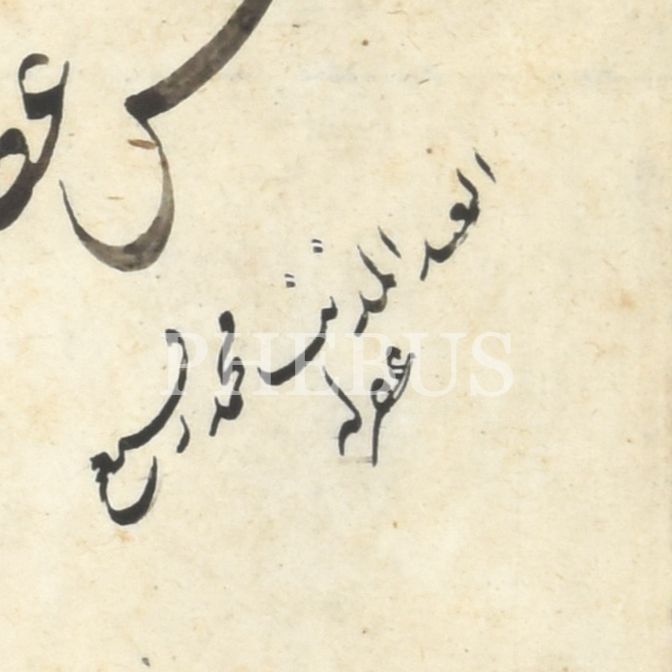 العبد المذنب محمد رسيع
غفر له
PHEBUS